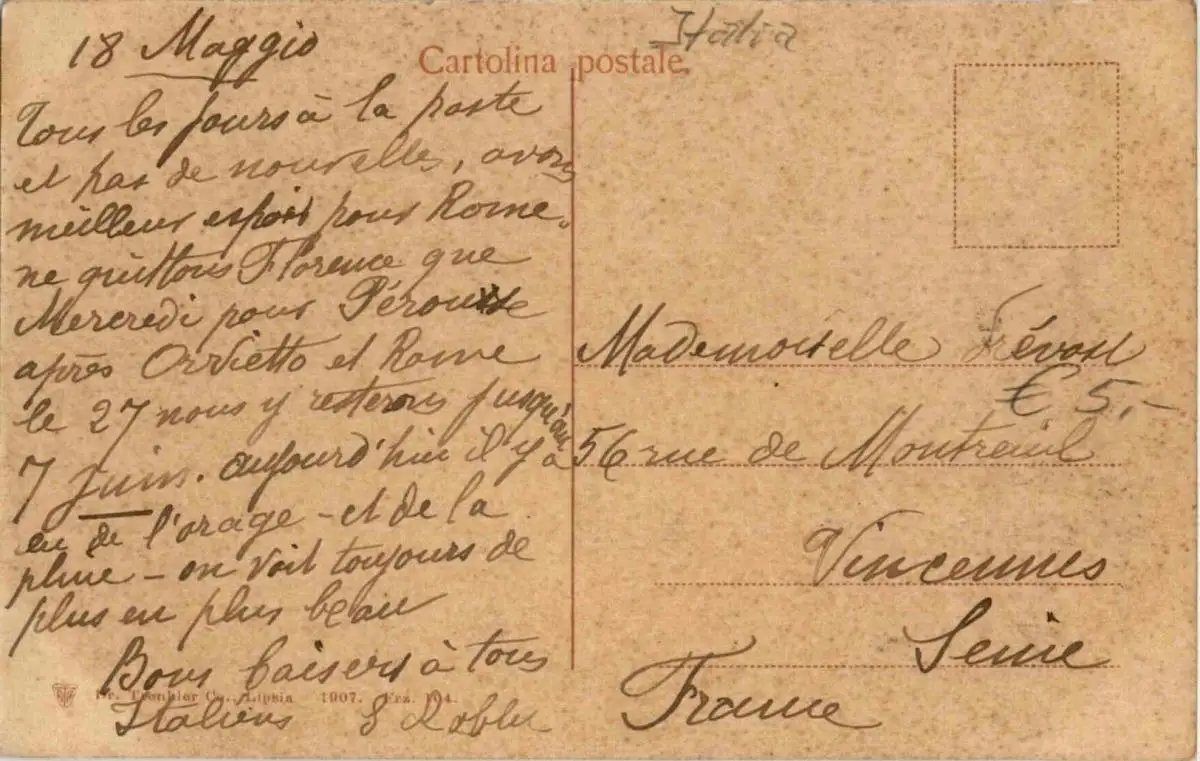 18 Maggio
Tous les jours à la poste
et pas de nouvelles, avons
meilleur espoir pour Rome.
ne quittons Florence que
Mercredi pour Pérouse
après Orvietto et Rome
le 27 nous y resterons jusqu'au
7 Juin. aujourd'hui il y a
eu de l'orage - et de la
pluie - on voit toujours de
plus en plus beau
Bons baisers à tous
Italiens
Dr. Trenkler Co., Lipsia 1907. Frz. 104.
Cartolina postale.
Italia
Mademoiselle Prévost
€ 5.-
56 rue de Montreuil
Vincennes
Seine
France